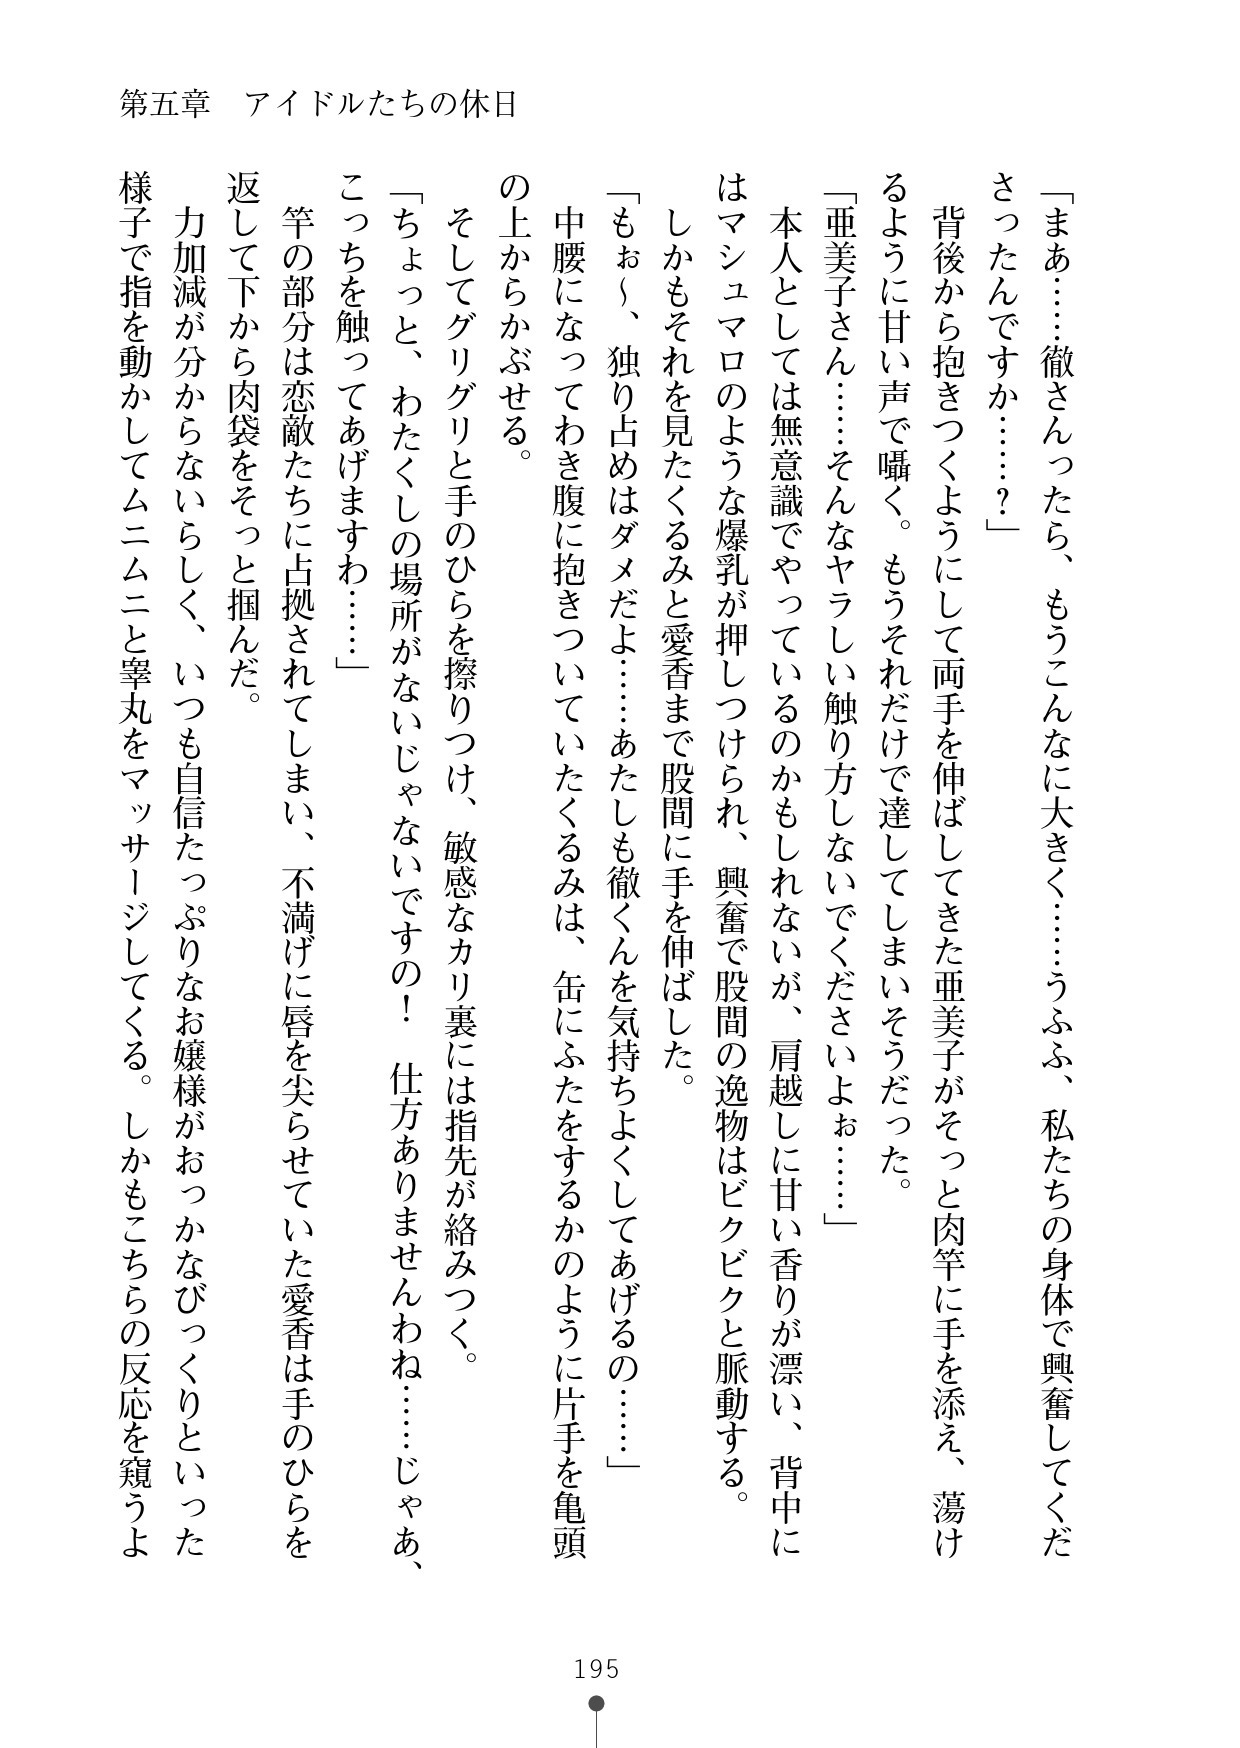 第五章　アイドルたちの休日
「まあ……徹さんったら、もうこんなに大きく……うふふ、私たちの身体で興奮してくだ
さったんですか……？」
　背後から抱きつくようにして両手を伸ばしてきた亜美子がそっと肉竿に手を添え、蕩け
るように甘い声で囁く。もうそれだけで達してしまいそうだった。
「亜美子さん……そんなヤラしい触り方しないでくださいよぉ……」
　本人としては無意識でやっているのかもしれないが、肩越しに甘い香りが漂い、背中に
はマシュマロのような爆乳が押しつけられ、興奮で股間の逸物はビクビクと脈動する。
　しかもそれを見たくるみと愛香まで股間に手を伸ばした。
「もぉ～、独り占めはダメだよ……あたしも徹くんを気持ちよくしてあげるの……」
　中腰になってわき腹に抱きついていたくるみは、缶にふたをするかのように片手を亀頭
の上からかぶせる。
　そしてグリグリと手のひらを擦りつけ、敏感なカリ裏には指先が絡みつく。
「ちょっと、わたくしの場所がないじゃないですの！　仕方ありませんわね……じゃあ、
こっちを触ってあげますわ……」
　竿の部分は恋敵たちに占拠されてしまい、不満げに唇を尖らせていた愛香は手のひらを
返して下から肉袋をそっと掴んだ。
　力加減が分からないらしく、いつも自信たっぷりなお嬢様がおっかなびっくりといった
様子で指を動かしてムニムニと睾丸をマッサージしてくる。しかもこちらの反応を窺うよ
195